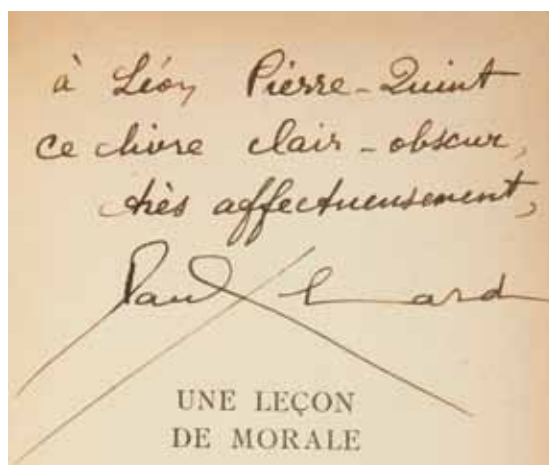 à Léon Pierre-Quint
ce livre clair-obscur,
très affectueusement,
Paul Eluard
UNE LEÇON
DE MORALE